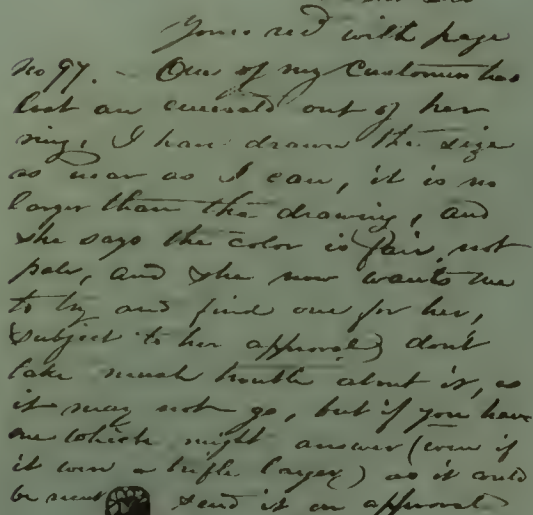 Yours rec'd with page
No 97. - One of my Customers has
lost an emerald out of her
ring, I have drawn the size
as near as I can, it is no
larger than the drawing, and
she says the color is fair, not
pale, and she now wants me
to try and find one for her,
(subject to her approval) don't
take much trouble about it, as
it may not go, but if you have
one which might answer (even if
it were a trifle larger) as it could
be send it on approval